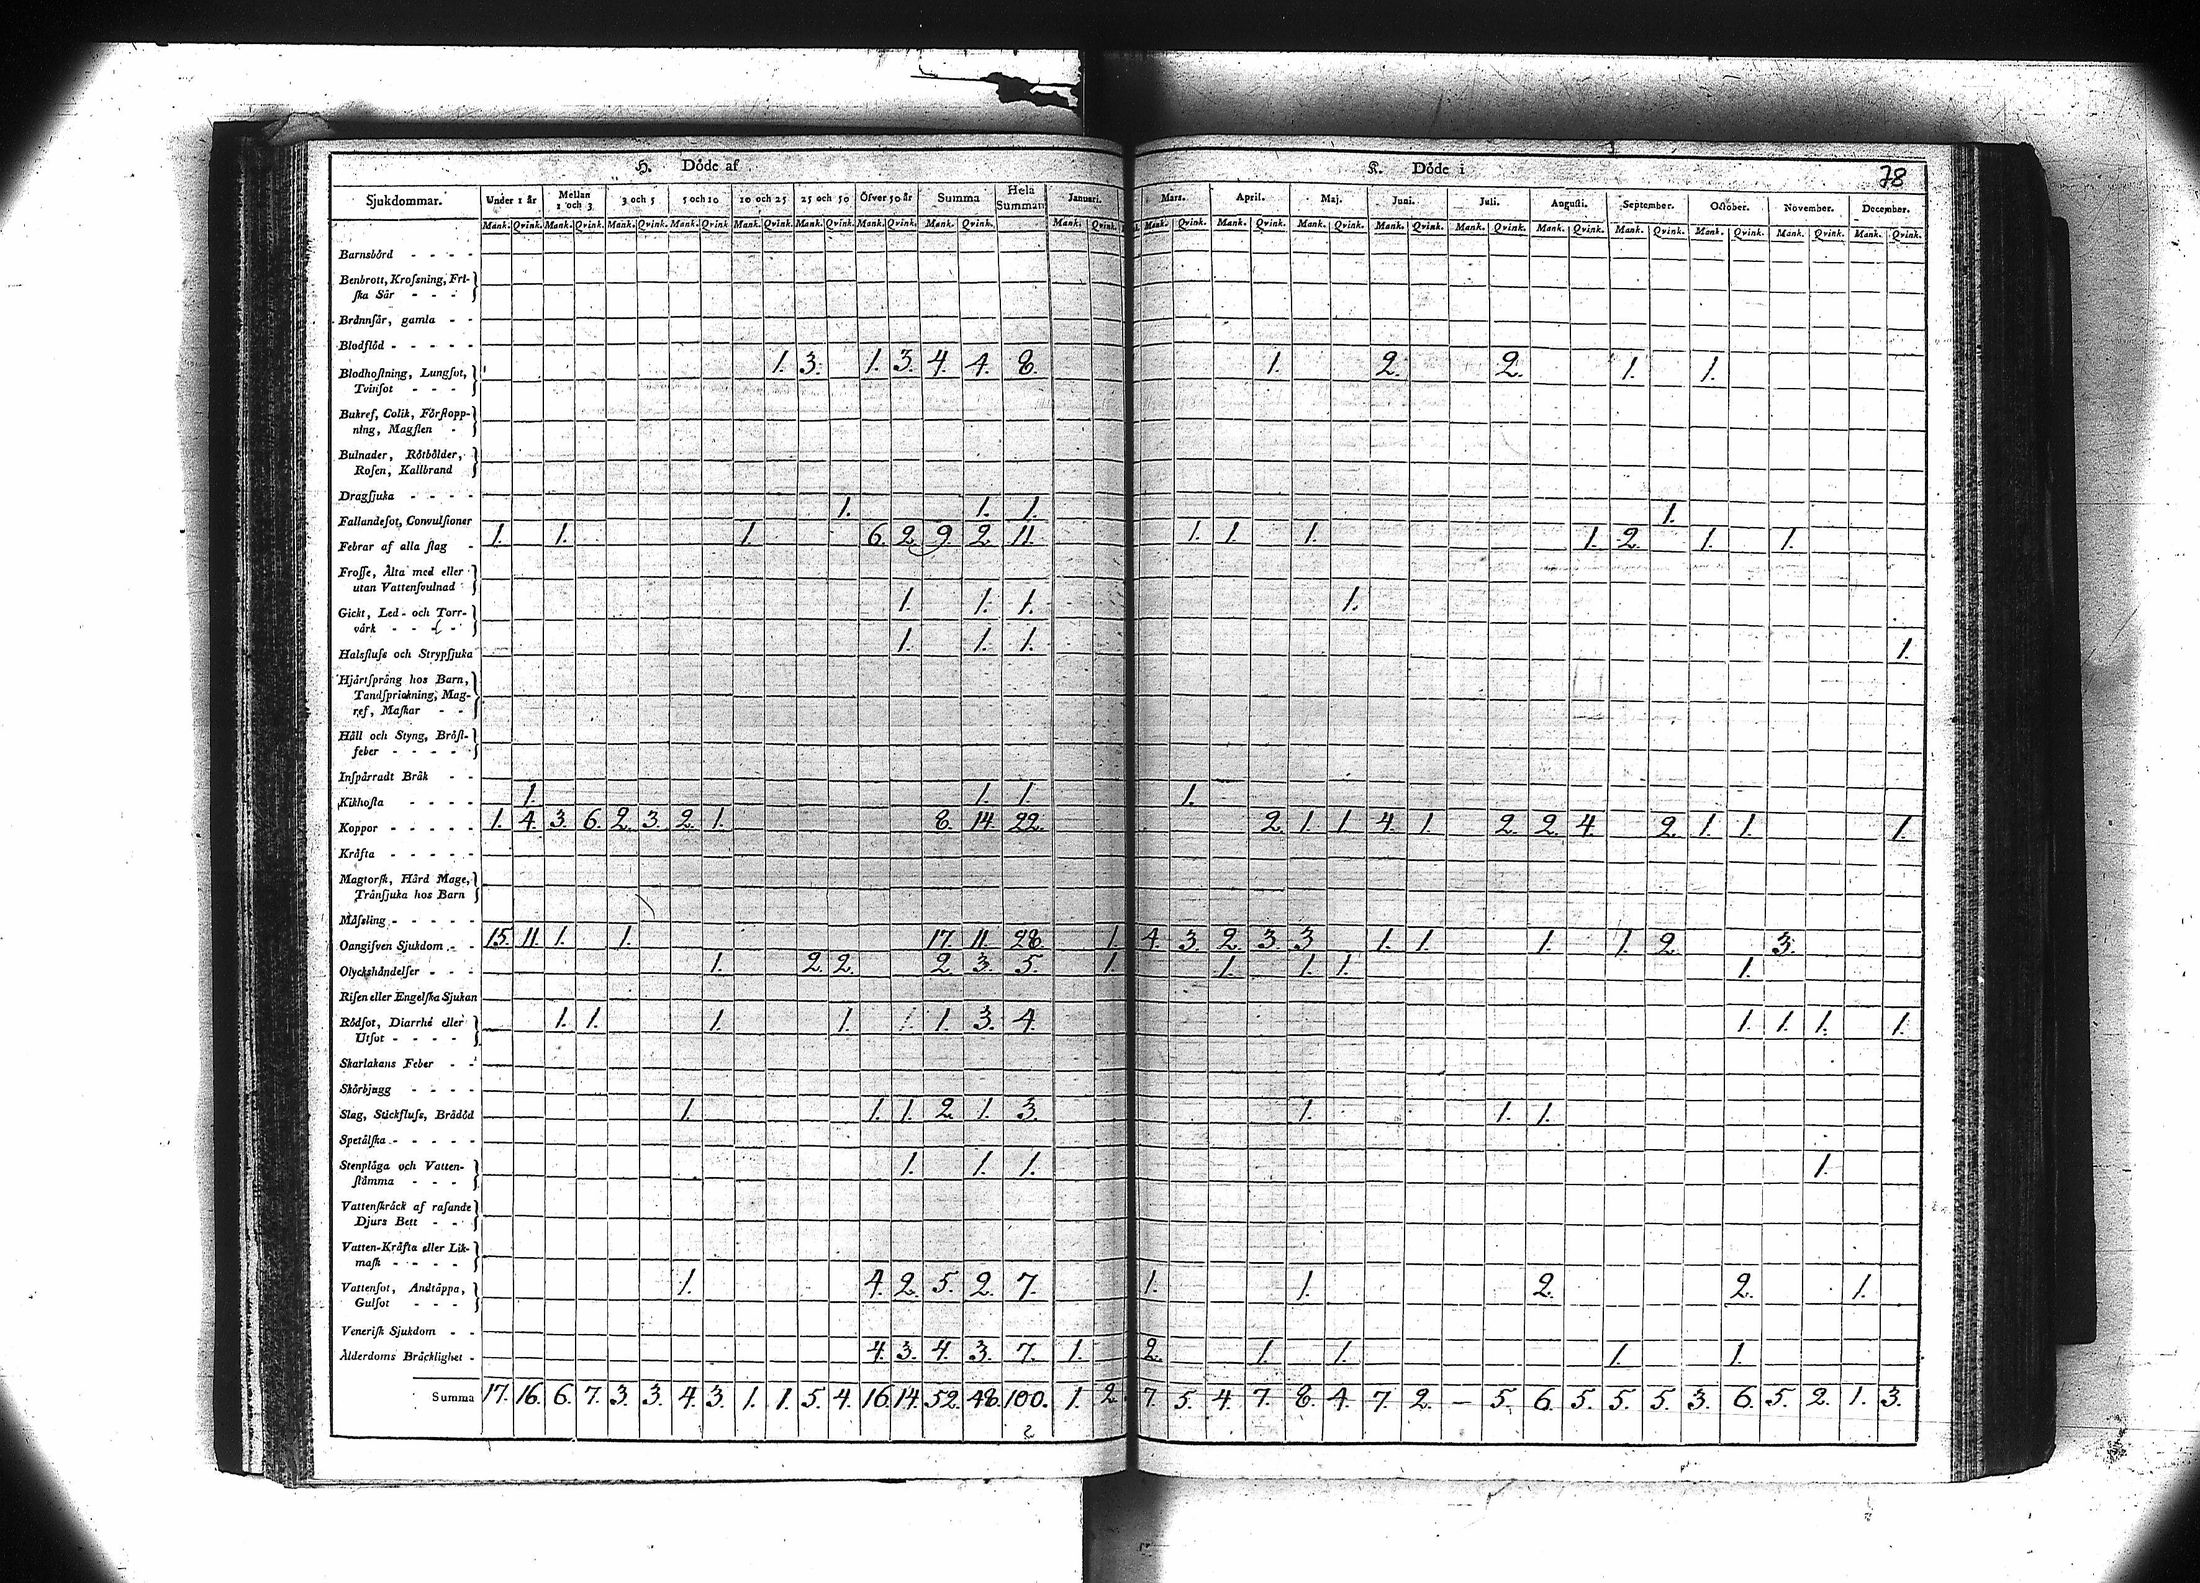 H. Döde af
K. Döde i
78
Sjukdommar. Under 1 år Mellan 1 och 3 3 och 5 5 och 10 10 och 25 25 och 50 Öfver 50 år Summa Hela Summan Januari. Mars. April. Maj. Juni. Juli. Augusti. September. October. November. December.
Mank. Qvink. Mank. Qvink. Mank. Qvink. Mank. Qvink. Mank. Qvink. Mank. Qvink. Mank. Qvink. Mank. Qvink. Mank. Qvink. Mank. Qvink. Mank. Qvink. Mank. Qvink. Mank. Qvink. Mank. Qvink. Mank. Qvink. Mank. Qvink. Mank. Qvink. Mank. Qvink. Mank. Qvink.
Barnsbörd
Benbrott, Kroſsning, Fri-
ſka Sår
Brännſår, gamla
Blodflöd
Blodhoſtning, Lungſot, 1. 3. 1. 3. 4. 4. 8. 1. 2. 2. 1. 1.
Tvinſot
Bukref, Colik, Förſtopp-
ning, Magſlen
Bulnader, Rötbölder,
Roſen, Kallbrand
Dragſjuka
Fallandeſot, Convulſioner 1. 1. 1. 1.
Febrar af alla ſlag 1. 1. 1. 6. 2. 9. 2. 11. 1. 1. 1. 1. 2. 1. 1.
Froſſe, Älta med eller
utan Vattenſvulnad
Gickt, Led- och Torr- 1. 1. 1. 1.
värk
Halsfluſs och Strypſjuka 1. 1. 1. 1.
Hjärtſprång hos Barn,
Tandſprickning, Mag-
ref, Maſkar
Håll och Styng, Bröſt-
feber
Inſpärradt Bråk
Kikhoſta 1. 1. 1. 1.
Koppor 1. 4. 3. 6. 2. 3. 2. 1. 8. 14. 22. 2. 1. 1. 4. 1. 2. 2. 4. 2. 1. 1. 1.
Kräfta
Magtorſk, Hård Mage,
Tränſjuka hos Barn
Mäſsling
Oangifven Sjukdom 15. 11. 1. 1. 17. 11. 28. 1. 4. 3. 2. 3. 3. 1. 1. 1. 1. 2. 3.
Olyckshändelſer 1. 2. 2. 2. 3. 5. 1. 1. 1. 1. 1.
Riſen eller Engelſka Sjukan
Rödſot, Diarrhé eller 1. 1. 1. 1. 1. 3. 4. 1. 1. 1. 1.
Utſot
Skarlakans Feber
Skörbjugg
Slag, Stickfluſs, Brådöd 1. 1. 1. 2. 1. 3. 1. 1. 1.
Spetälſka
Stenplåga och Vatten- 1. 1. 1. 1.
ſtämma
Vattenſkräck af raſande
Djurs Bett
Vatten-Kräfta eller Lik-
maſk
Vattenſot, Andtäppa, 1. 4. 2. 5. 2. 7. 1. 1. 2. 2. 1.
Gulſot
Veneriſk Sjukdom
Ålderdoms Bräcklighet 4. 3. 4. 3. 7. 1. 2. 1. 1. 1. 1.
Summa 17. 16. 6. 7. 3. 3. 4. 3. 1. 1. 5. 4. 16. 14. 52. 48. 100. 1. 2. 7. 5. 4. 7. 8. 4. 7. 2. – 5. 6. 5. 5. 5. 3. 6. 5. 2. 1. 3.